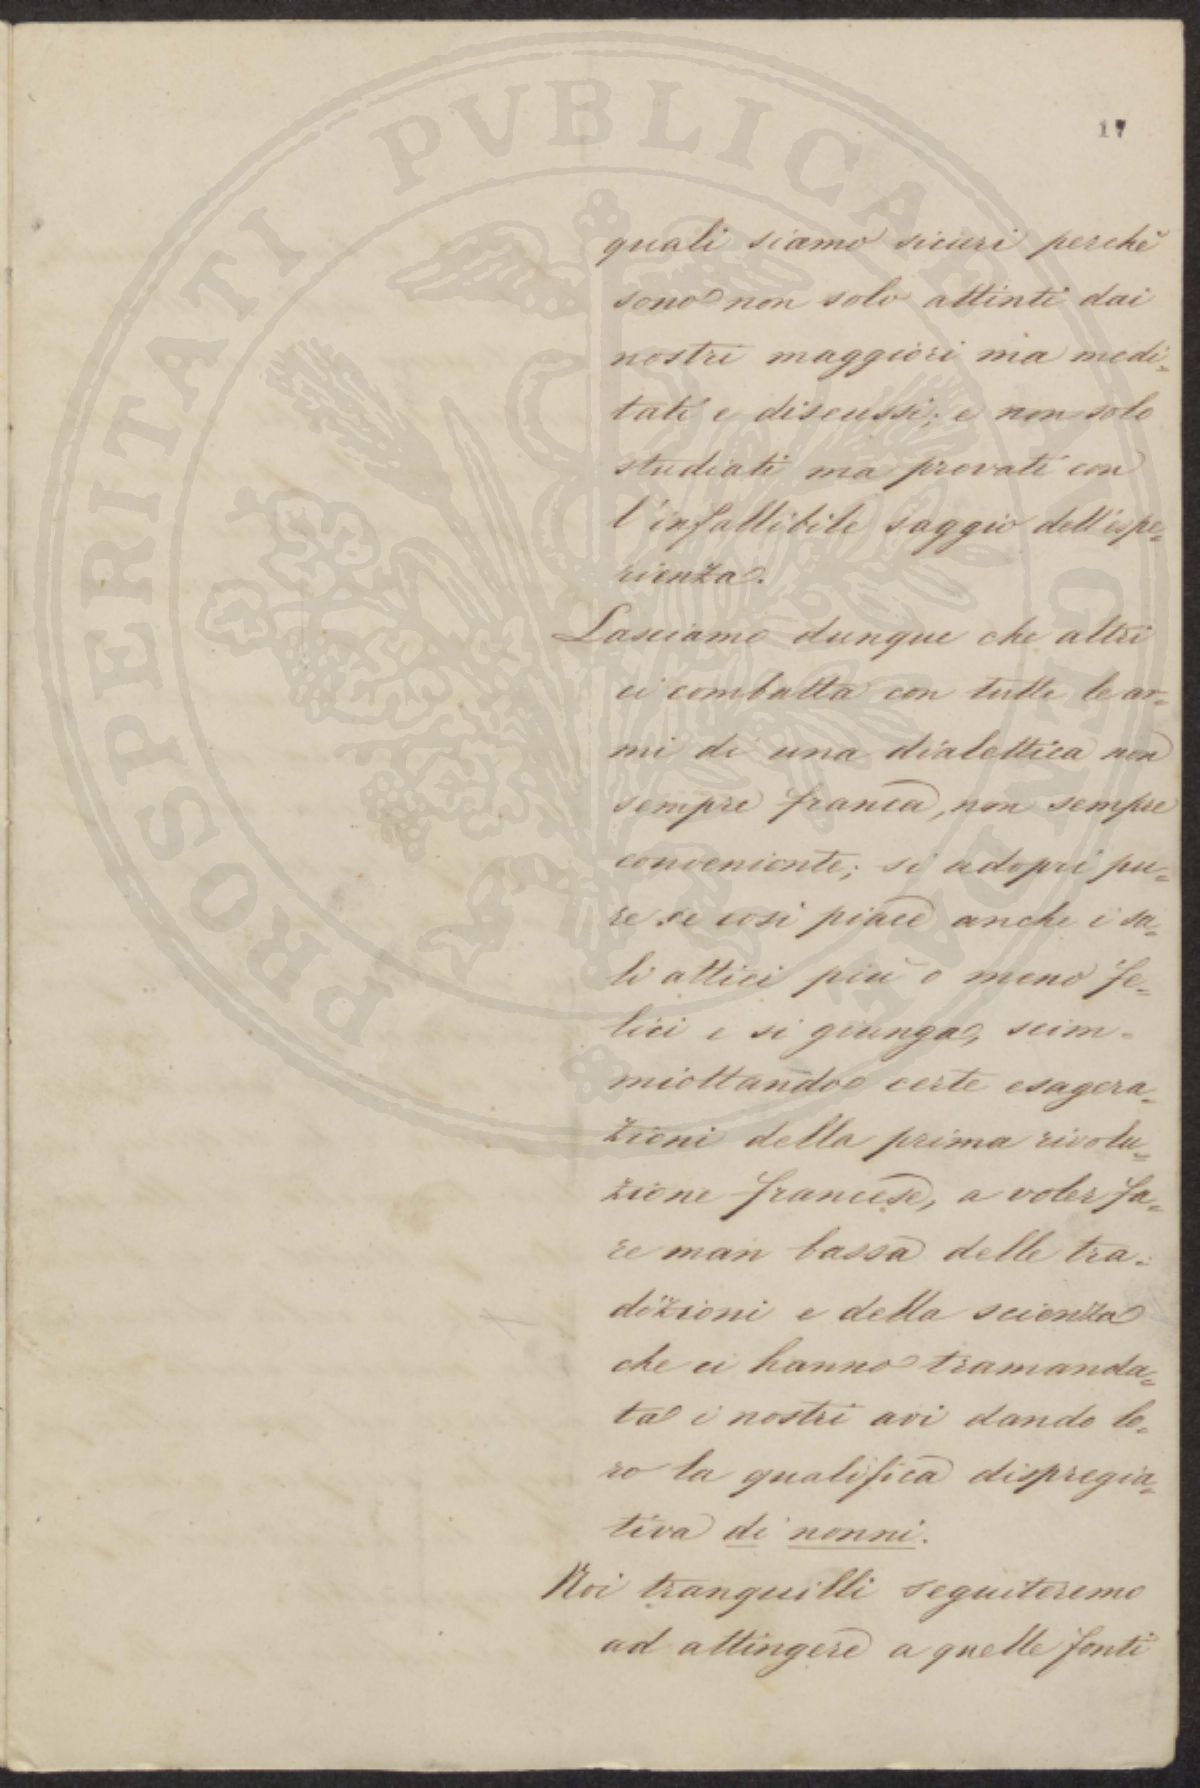 17
quali siamo sicuri perchè
sono non solo attinti dai
nostri maggiori ma medi=
tati e discussi; e non solo
studiati ma provati con
l'infallibile saggio dell'espe=
rienza.
Lasciamo dunque che altri
ci combatta con tutte le ar=
mi di una dialettica non
sempre franca, non sempre
conveniente; si adopri pu=
re se così piace anche i sa=
li attici più o meno fe=
lici e si giunga, scim=
miottando certe esagera=
zioni della prima rivolu=
zione francese, a voler fa=
re man bassa delle tra=
dizioni e della scienza
che ci hanno tramanda=
ta i nostri avi dando lo=
ro la qualifica dispregia=
tiva di nonni.
Noi tranquilli seguiteremo
ad attingere a quelle fonti
PROSPERITATI PVBLICAE AVGENDAE